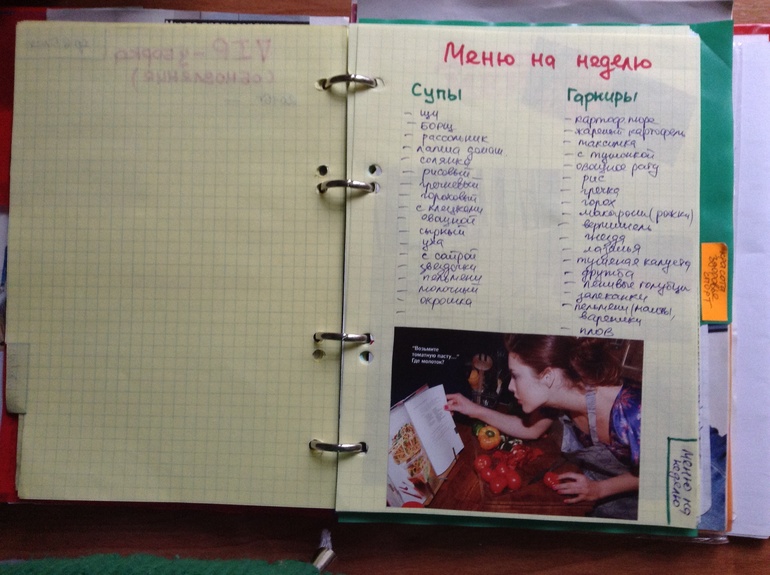 VIP-уборка
Меню на неделю
Супы
- щи
- борщ
- рассольник
- лапша домаш
- солянка
- рисовый
- гречневый
- гороховый
- с клецками
- овощной
- сырный
- уха
- с сайрой
- звездочки
- пельмени
- молочный
- окрошка
-
Гарниры
- картоф. пюре
- жареный картофель
- таксимка
- с тушонкой
- овощное рагу
- рис
- гречка
- горох
- макароны (рожки)
- вермишель
- гнезда
- лазанья
- тушеная капуста
- дружба
- ленивые голубцы
- запеканки
- пельмени/манты,
вареники
- плов
"Возьмите
томатную пасту..."
Где молоток?
Меню на
неделю
красота
здоровье
спорт